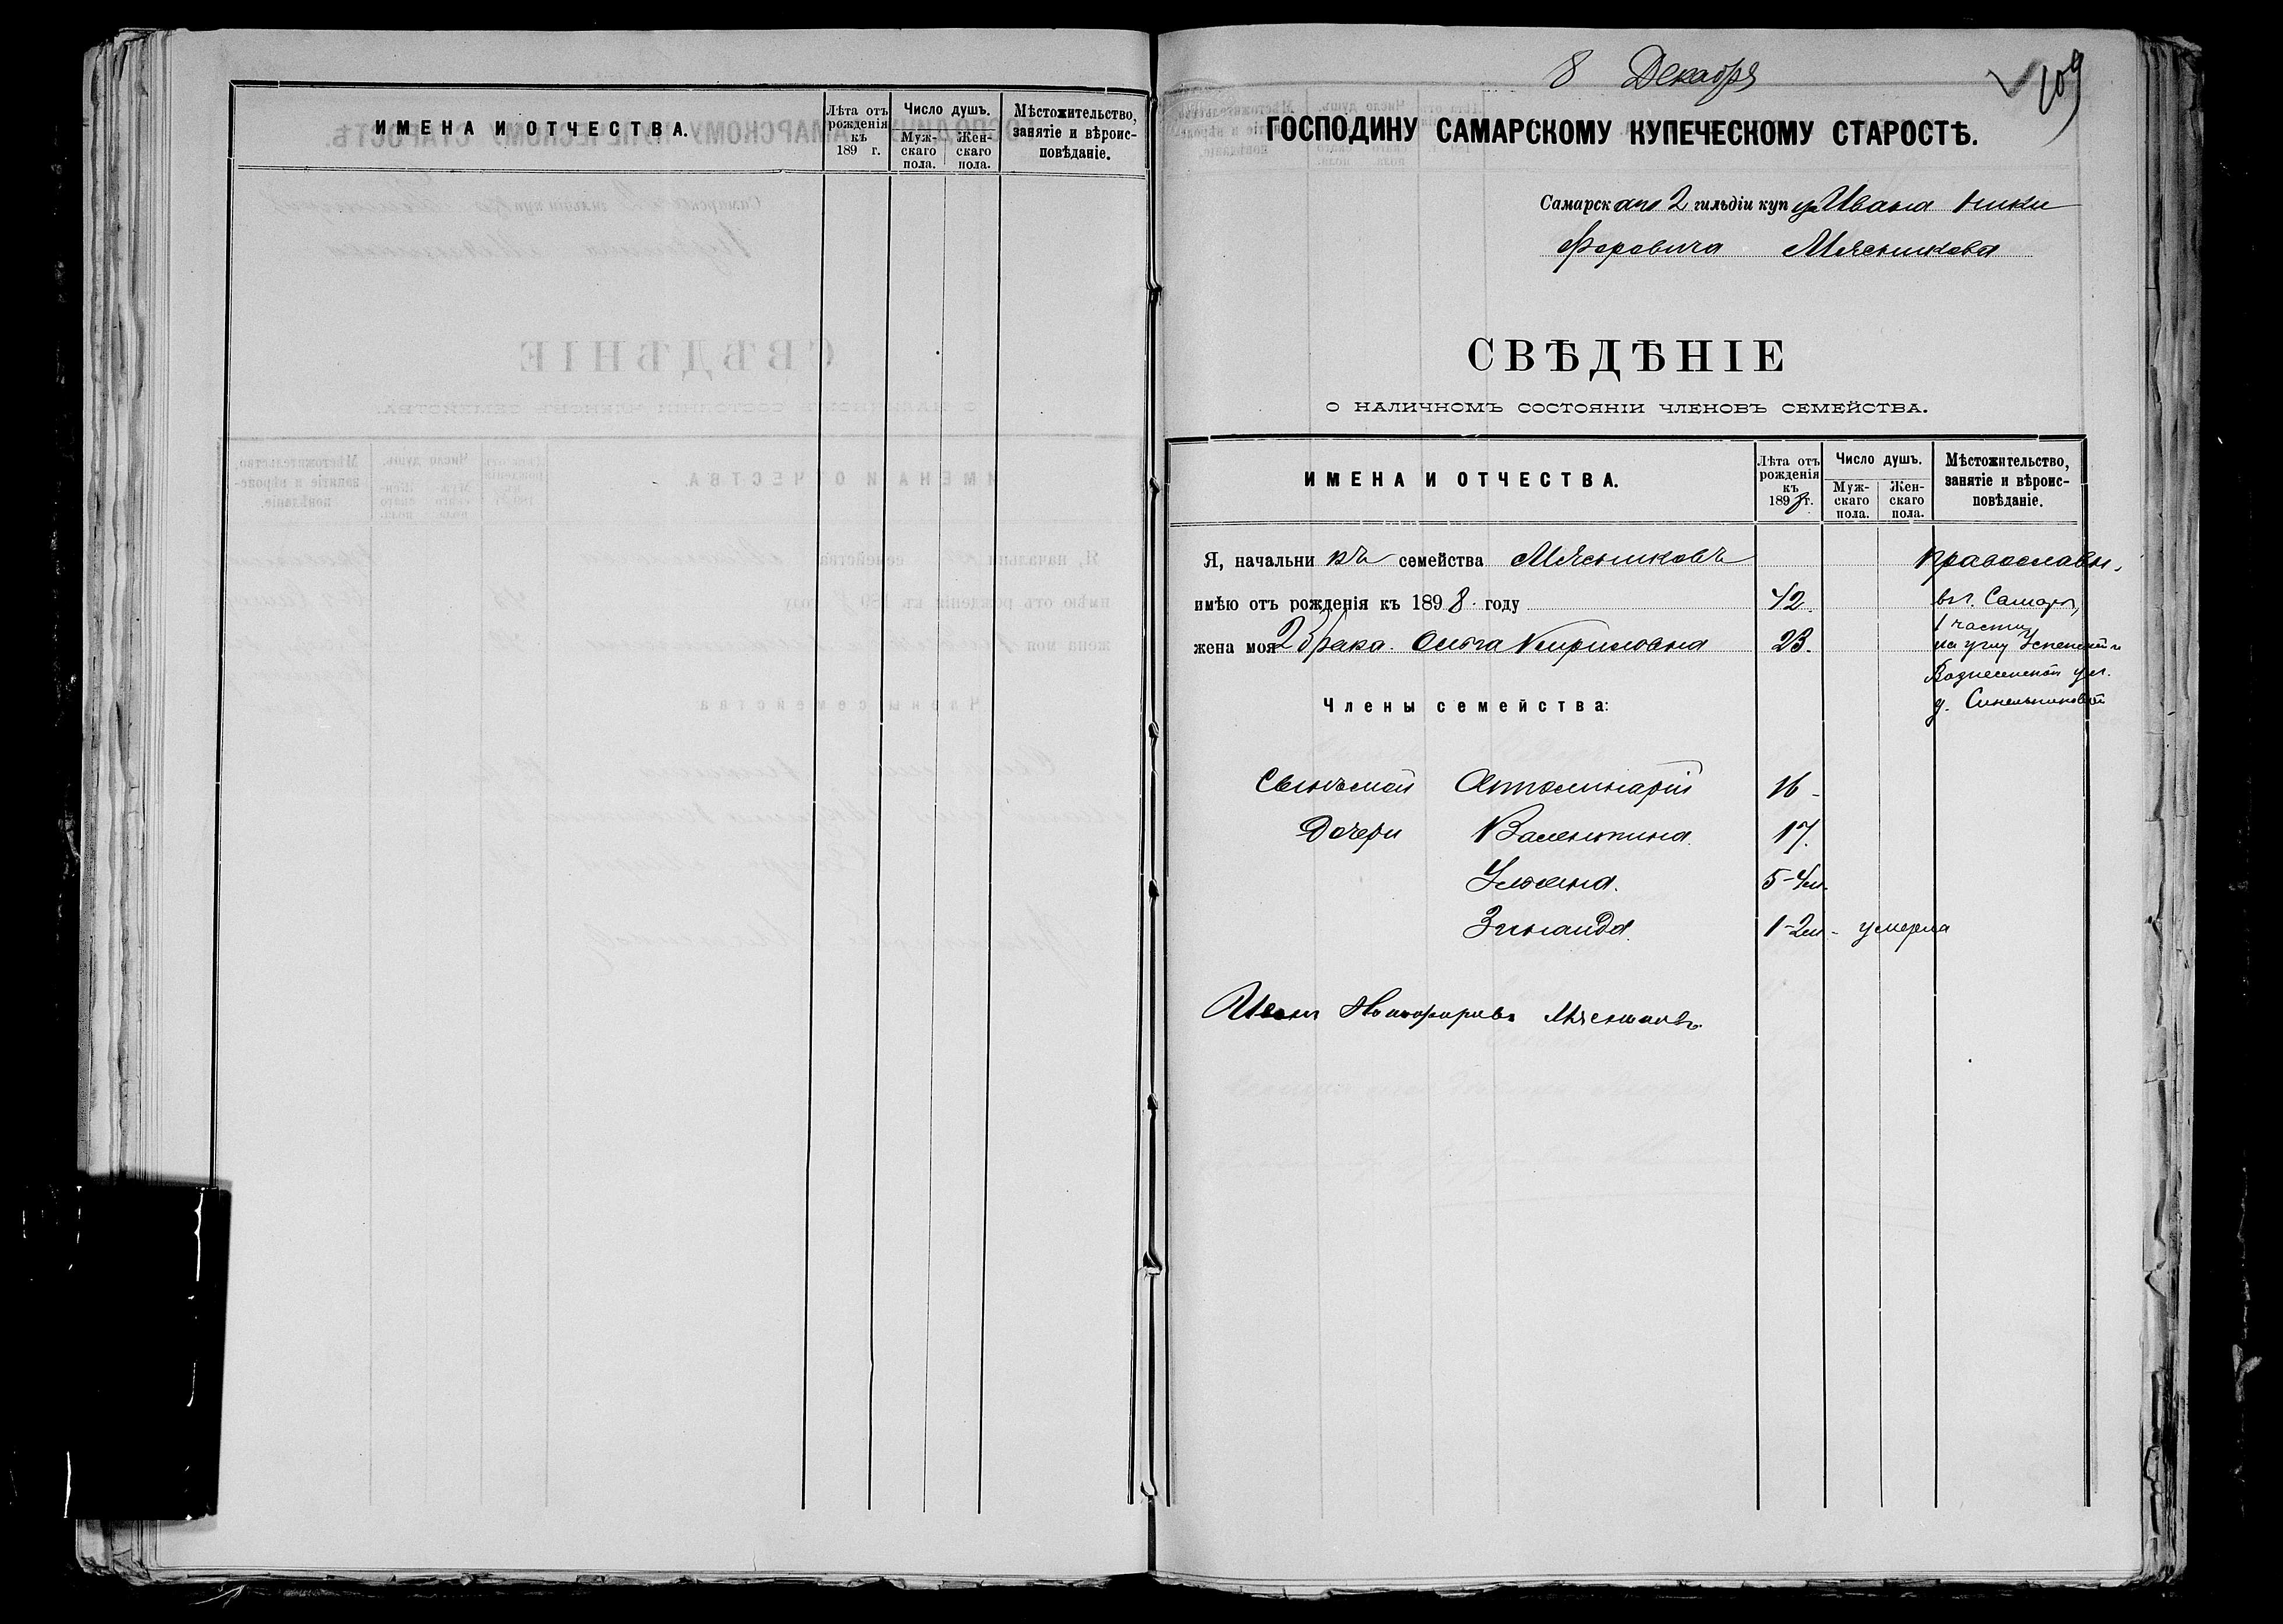 ИМЕНА И ОТЧЕСТВА.
Лѣта отъ рожденія къ 189 г.
Число душъ.
Муж- скаго пола.
Жен- скаго пола.
Мѣстожительство, занятіе и вѣроис- повѣданіе.
8 Декабря
109
ГОСПОДИНУ САМАРСКОМУ КУПЕЧЕСКОМУ СТАРОСТѢ.
Самарскаго 2 гильдіи куп Ивана Ники
форовича Мясникова
СВѢДѢНІЕ
О НАЛИЧНОМЪ СОСТОЯНІИ ЧЛЕНОВЪ СЕМЕЙСТВА.
ИМЕНА И ОТЧЕСТВА.
Лѣта отъ рожденія къ 1898 г.
Число душъ.
Муж- скаго пола.
Жен- скаго пола.
Мѣстожительство, занятіе и вѣроис- повѣданіе.
Я, начальникъ семейства Мясниковъ православн.
имѣю отъ рожденія къ 1898 году 42. в г. Самаре,
1 части
жена моя 2 брака. Ольга Кириловна 23. на углу Успенской и
Вознесенской ул.
Члены семейства: д. Синельниковой
Сынъ мой Апполинарій 16
Дочери Валентина. 17.
5-4 м.
Зинаида. 1-2 м - умерла
Иван Никифоровъ Мясниковъ